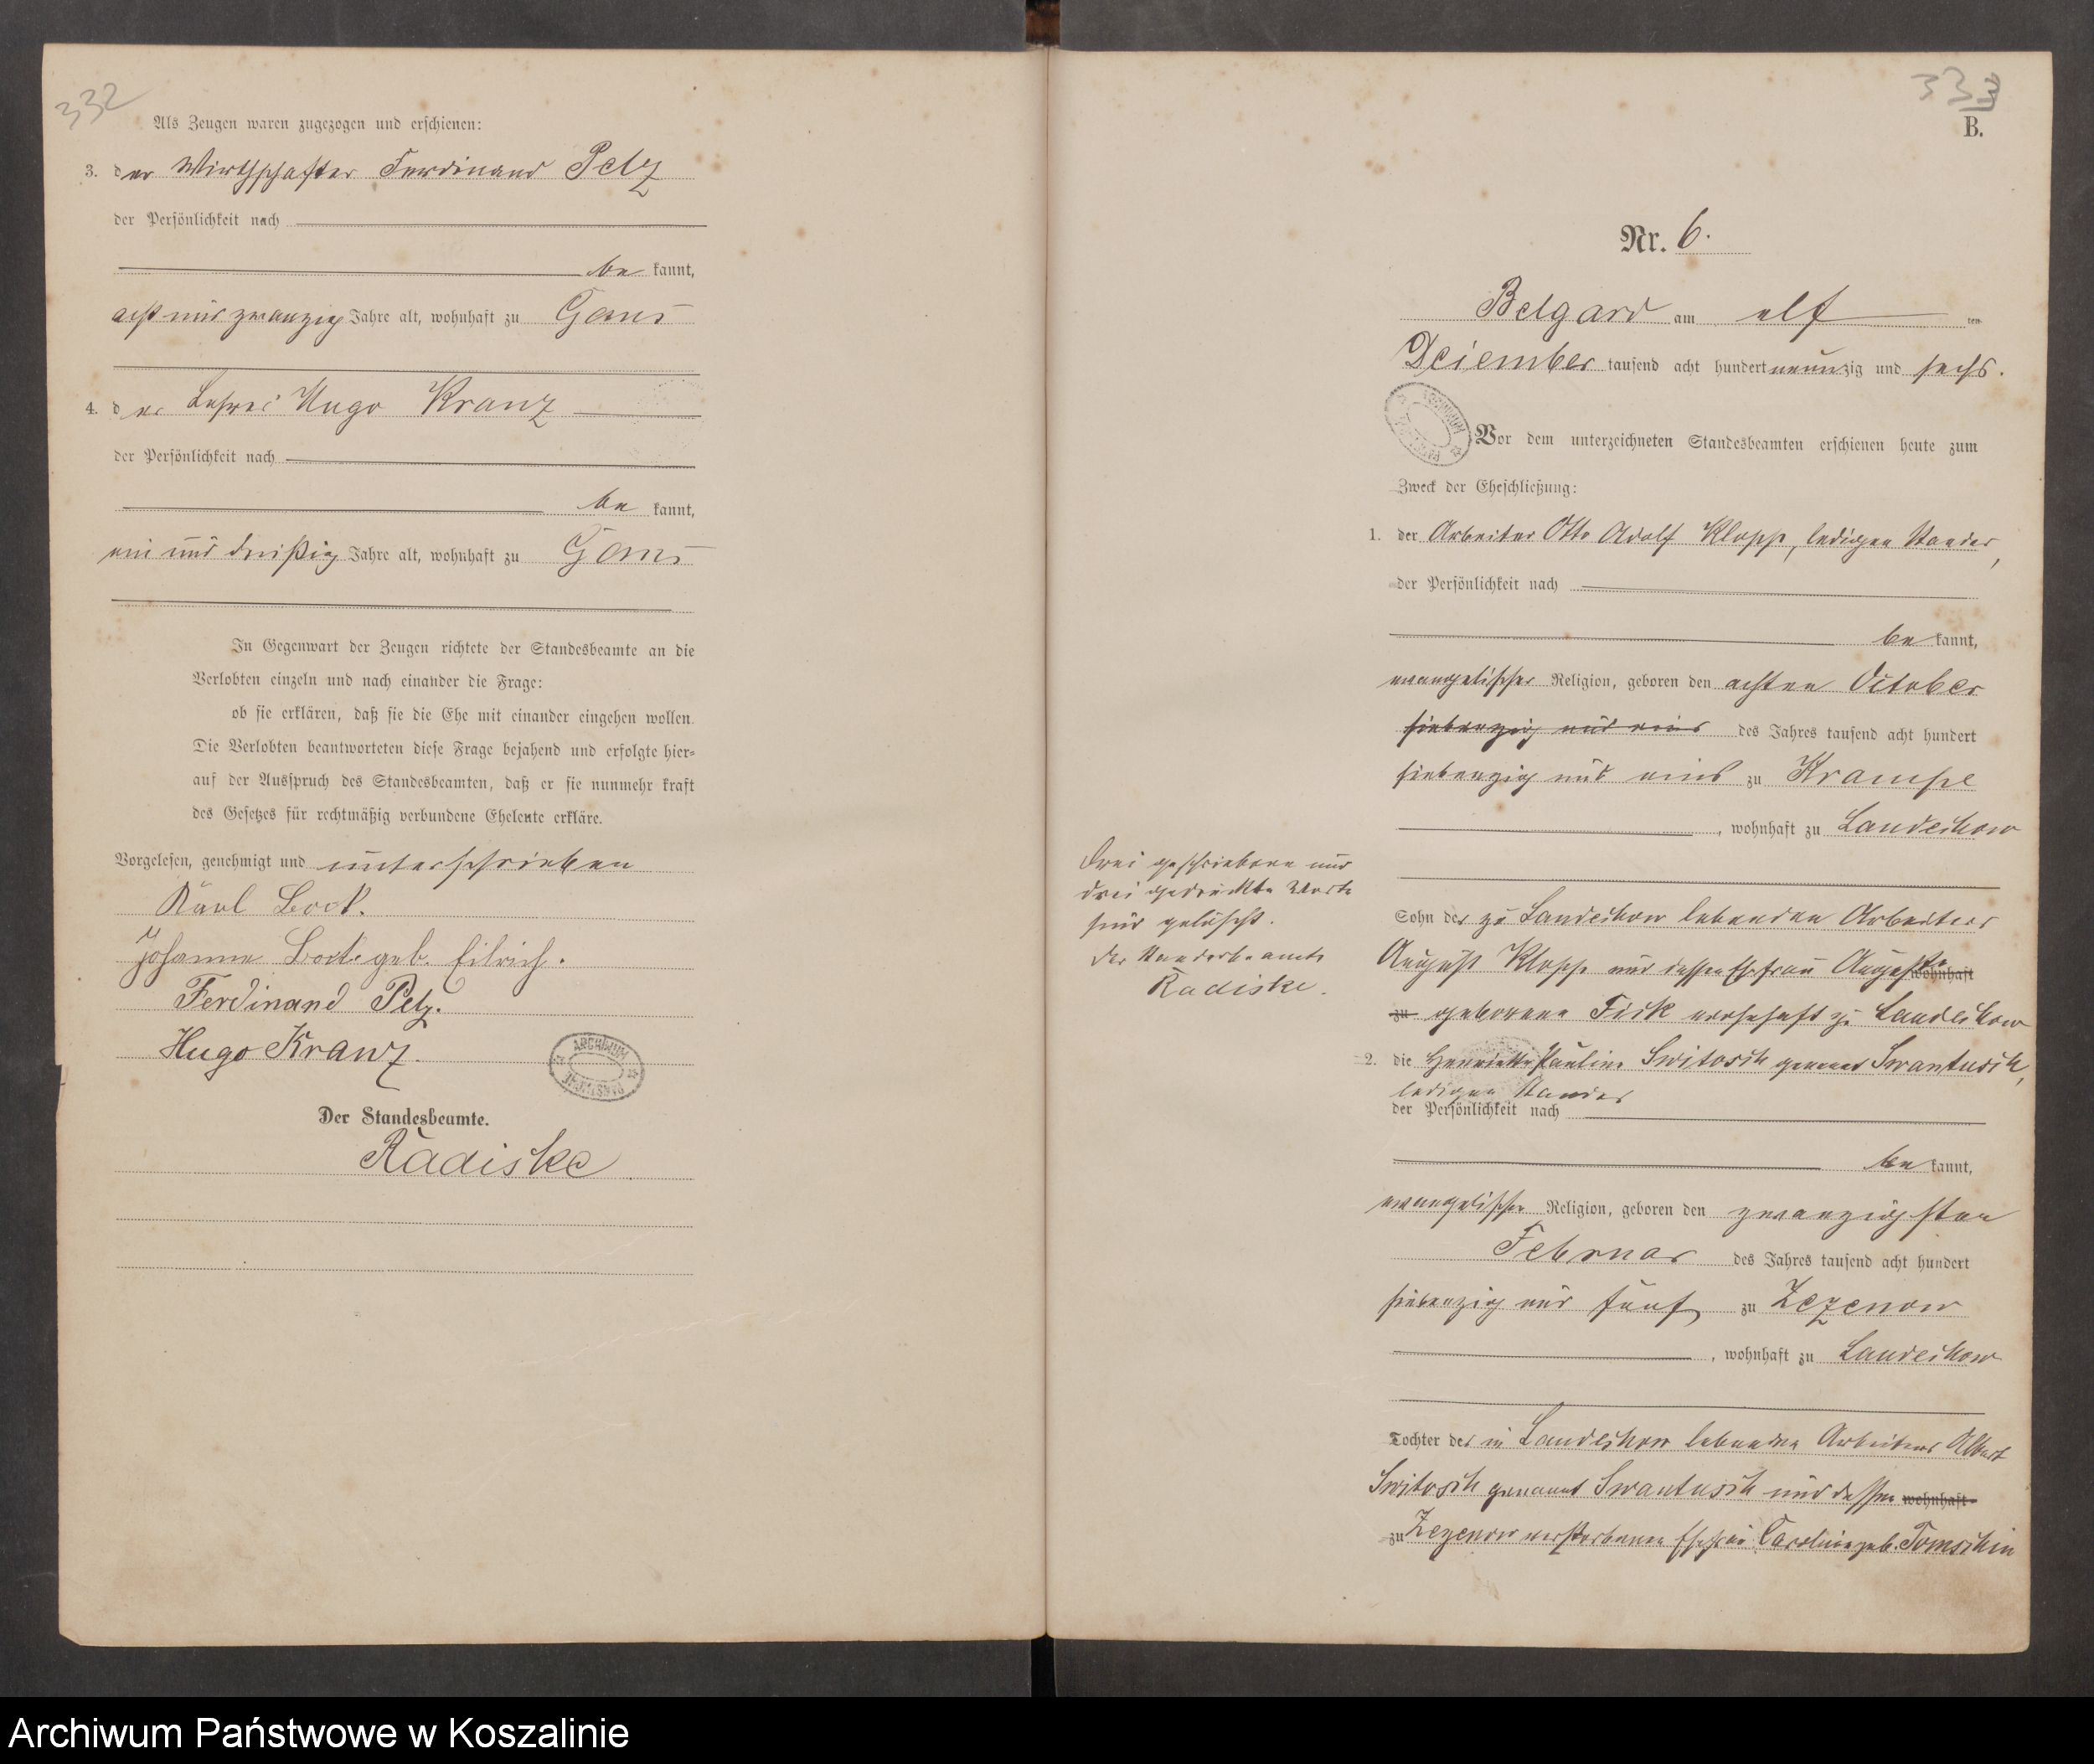 332
Als Zeugen waren zugezogen und erschienen:
3. der Wirthschafter Ferdinand Pelz
der Persönlichkeit nach
be kannt,
acht und zwanzig Jahre alt, wohnhaft zu Gans
4. der Lehrer Hugo Kranz
der Persönlichkeit nach
be kannt,
ein und dreißig Jahre alt, wohnhaft zu Gans
In Gegenwart der Zeugen richtete der Standesbeamte an die
Verlobten einzeln und nach einander die Frage:
ob sie erklären, daß sie die Ehe mit einander eingehen wollen.
Die Verlobten beantworteten diese Frage bejahend und erfolgte hier-
auf der Ausspruch des Standesbeamten, daß er sie nunmehr kraft
des Gesetzes für rechtmäßig verbundene Eheleute erkläre.
Vorgelesen, genehmigt und unterschrieben
Karl Bock.
Johanna Bock geb. Eilrich.
Ferdinand Pelz.
Hugo Kranz.
ARCHIWUM PAŃSTWOWE
Der Standesbeamte.
Radiske
333
B.
Nr. 6.
Belgard am elf ten
Dezember tausend acht hundert neunzig und sechs.
ARCHIWUM
Vor dem unterzeichneten Standesbeamten erschienen heute zum
Zweck der Eheschließung:
1. der Arbeiter Otto Adolf Klopp, ledigen Standes,
der Persönlichkeit nach
be kannt,
evangelischer Religion, geboren den achten October
siebenzig und eins des Jahres tausend acht hundert
siebenzig und eins zu Krampe
, wohnhaft zu Landechow
Drei geschriebene und
drei gedruckte Worte
sind gelöscht.
Der Standesbeamte
Radiske.
Sohn des zu Landechow lebenden Arbeiters
August Klopp und dessen Ehefrau Auguste wohnhaft
zu geborene Fick wohnhaft zu Landechow
2. die Henriette Pauline Switosch genannt Swantusch,
ledigen Standes
der Persönlichkeit nach
be kannt,
evangelischer Religion, geboren den zwanzigsten
Februar des Jahres tausend acht hundert
siebenzig und fünf zu Zezenow
, wohnhaft zu Landechow
Tochter des in Landechow lebenden Arbeiters Albert
Switosch genannt Swantusch und dessen wohnhaft
zu Zezenow verstorbenen Ehefrau Caroline geb. Tomschin
Archiwum Państwowe w Koszalinie